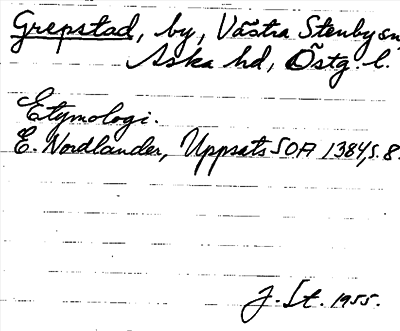 Grepstad, by, Västra Stenby sn,
Aska hd, Östg. l.
Etymologi.
E. Nordlander, Uppsats SOA 1384, s. 8.
J. St. 1955.